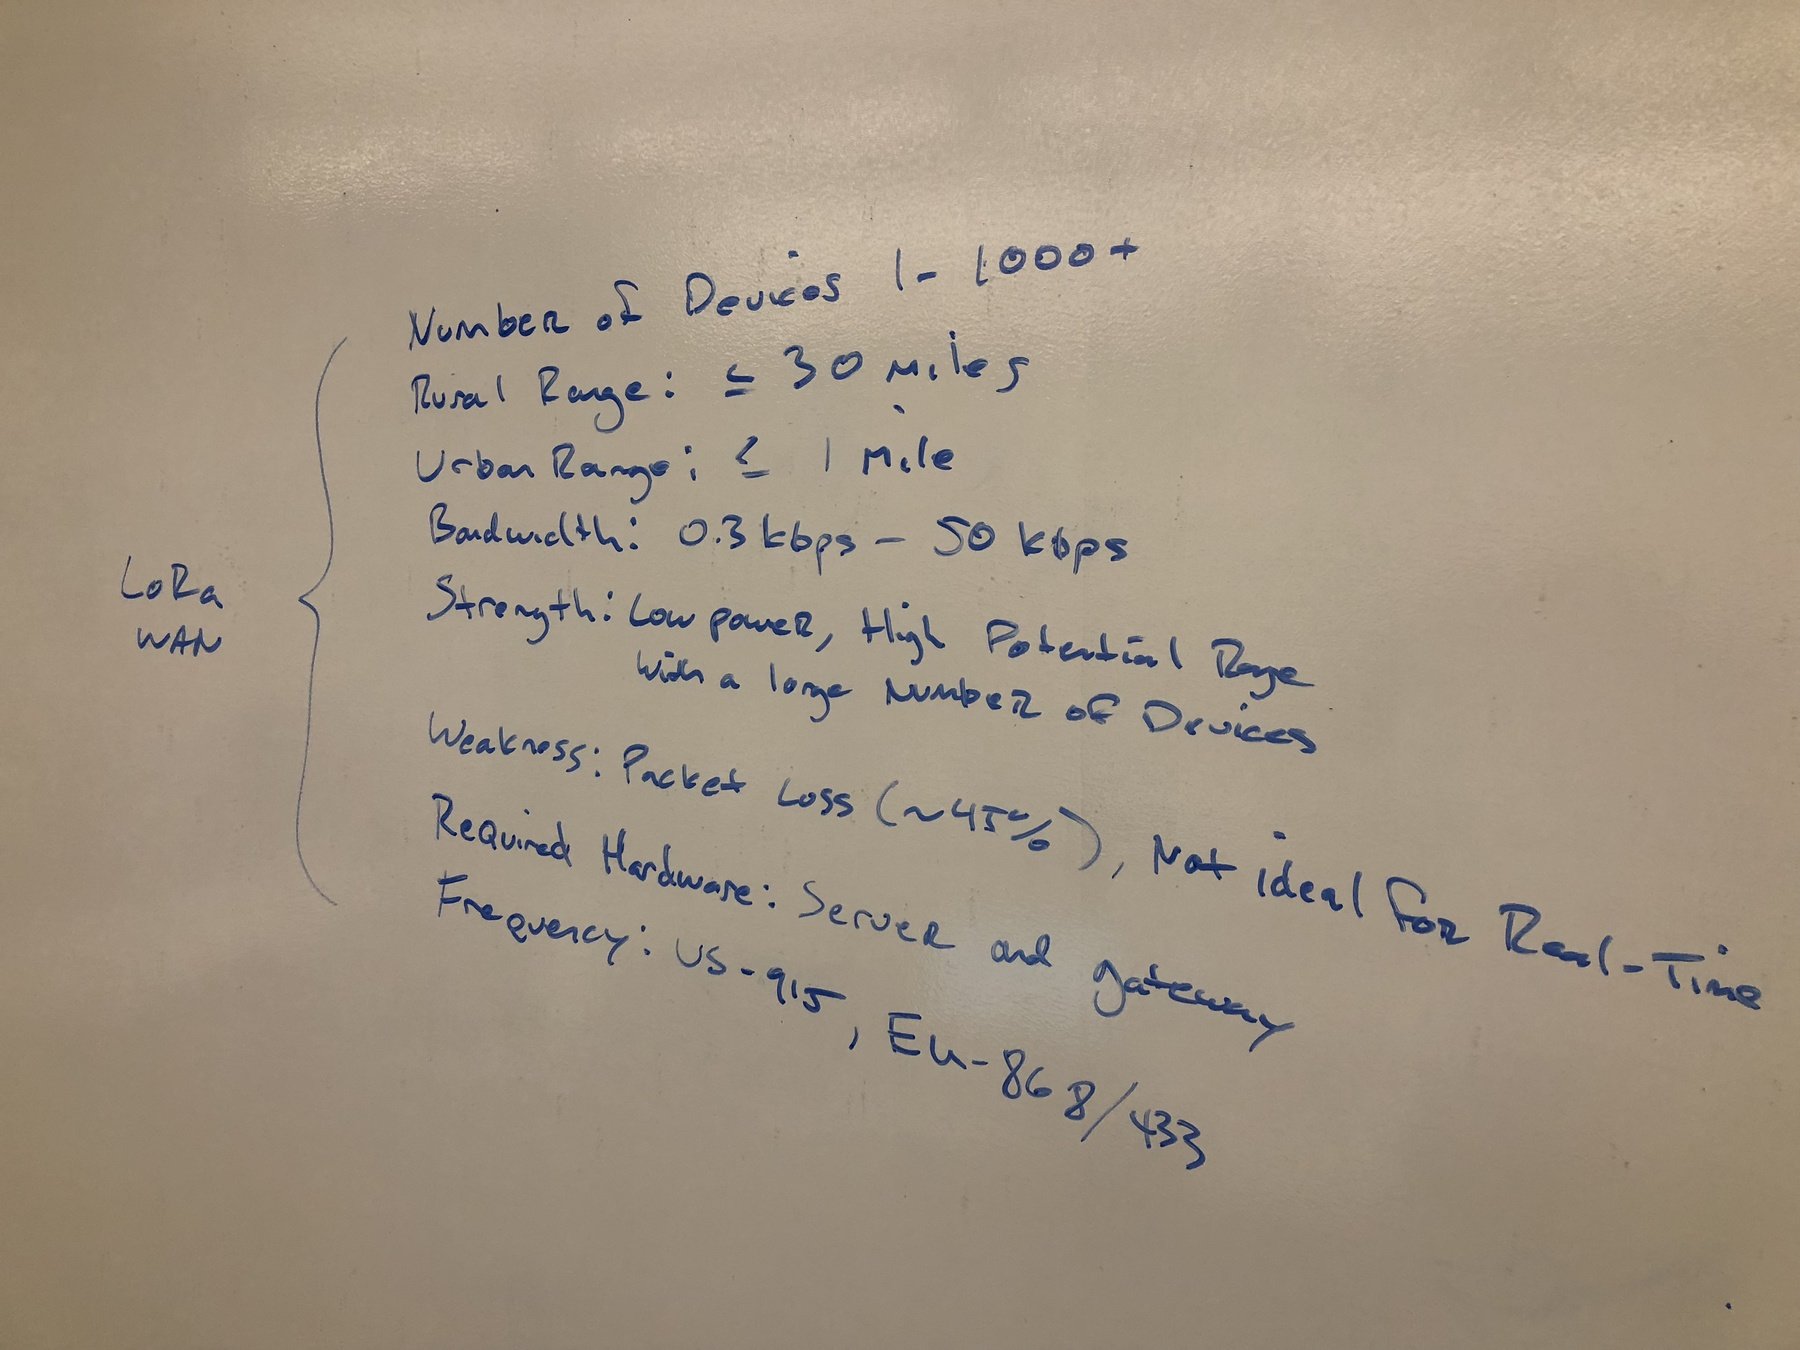 Number of Devices 1 - 1000+
Rural Range: ≤ 30 Miles
Urban Range: ≤ 1 Mile
Bandwidth: 0.3 kbps - 50 kbps
LoRa
WAN
Strength: Low power, High Potential Range
with a large Number of Devices
Weakness: Packet Loss (~45%), Not ideal for Real-Time
Required Hardware: Server and gateway
Frequency: US-915, EU-868/433